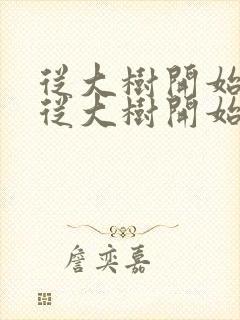 從大樹開始
從大樹開始
詹奕嘉